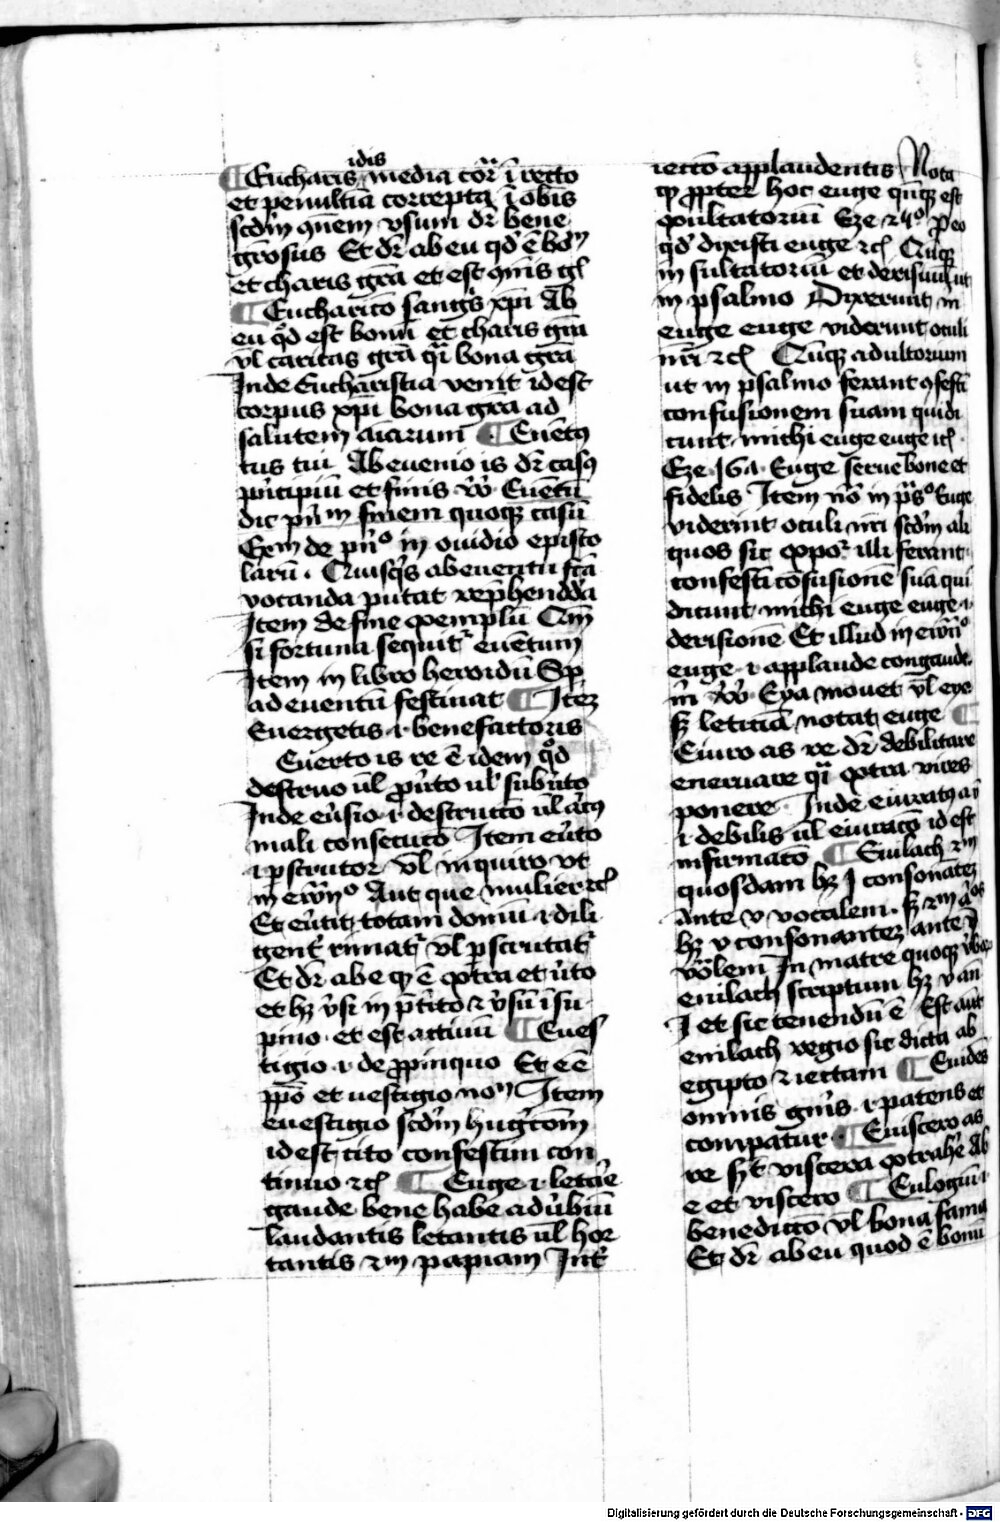 idis
¶ Eucharis media cor̄ ī recto
et penultīa correpta ī obl̄is
scd̄m qn̄em vsum dr̄ bene
gr̄osus Et dr̄ ab eu qd̄ ē bo
et charis gr̄a et est
¶ Eucharico sangs xp̄i Ab
eu qd̄ est bonū et charis
vl̄ caritas gr̄a q̄i bona gr̄a
Inde Eucharistia venit id est
corpus xp̄i bona gr̄a ad
salutem aīarum ¶ Euētꝯ
tus tui Ab euenio is dr̄ casꝯ
pͥncipiū et finis v̄o Euētū
dic in finem quoqꝫ casū
Exm̄ de pn̄o in ouidio episto
larū . Quisqͥs ab euentu fc̄a
vocanda putat rep̄hendda
Item de fine exemplū Cū
si fortuna sequitᷣ euētum
Item in libro
ad euentū festinat ¶ Itē
Euergetis .i. benefactoris
Euerto is re ē idem qd̄
destruo ūl puͥto ul̄ subuͥto
Inde eu̾sio .i. destructō ūl
mali consecutō Item eu̾to
.i. pscrutor vl̄ inquiro vt
in ewn̄o Aut que mulier rc̄
Et eu̾tit totam domū .i. dili
gent̾ rimatᷣ vl̄ pscrutatᷣ
Et dr̄ ab e qꝫ ē ext̄ra et v̾to
et hꝫ v̾si in p̄t̾ito ⁊ v̾sū ī su
pino . et est actiuū ¶ Eues
tigio .i. de ꝓpinquo Et ē
ppō et uestigio Item
euestigio scd̄m hug̾tōm
id est cito confestim con
tinuo rc̄ ¶ Euge .i. letare
gaude bene habe aduͥbiū
laudantis letantis ūl hor
tantis ⁊ m papiam Int̾
iectō applaudentis Nota
qꝫ ꝓpter hoc euge qn̄qꝫ est
exultatoriū Eze
qd̄ dixisti euge rc̄ Qn̄qꝫ
insultatoriū et derisiuū ut
in psalmo Dixerunt in
euge euge viderunt oculi
nr̄i rc̄ Qn̄qꝫ adultorium
ut in psalmo ferant ꝯfesti
confusionem suam qui di
cunt michi euge euge rc̄
Euge serue bone et
fidelis Item nō in ps̄o Euge
viderunt oculi nr̄i scd̄m ali
quos sic expoᷣ illi ferant
confesti cōfusionē suā qui
dicunt michi euge euge .i.
derisionē Et illud in ewn̄o
euge .i. applaude congaude
m v̾o Eya mouet vl̄ eye
sꝫ leticiā notat euge ¶
Eiuro as re dr̄ debilitare
eneruare q̄i ext̄ra vires
ponere . Inde eiuratꝯ
.i. debilis ūl eiuratō id est
infirmatō ¶ Euilach
quosdam hꝫ I consonātē
ante v vocalem . sꝫ
hꝫ v consonantē ante I
vōlem In matre quoqꝫ
euilach scriptum hꝫ v an̄
I et sic tenendū ē Est aut̄
euilach regio sic dicta ab
egipto ¶ Euidēs
omnis gn̾is .i. patens et
compatur . ¶ Euiscero as
re viscera extrahe̾ Ab
e et viscero ¶ Eulogiū .i.
benedictō vl̄ bona fama
Et dr̄ ab eu quod ē bonū
Digitalisierung gefördert durch die Deutsche Forschungsgemeinschaft - DFG